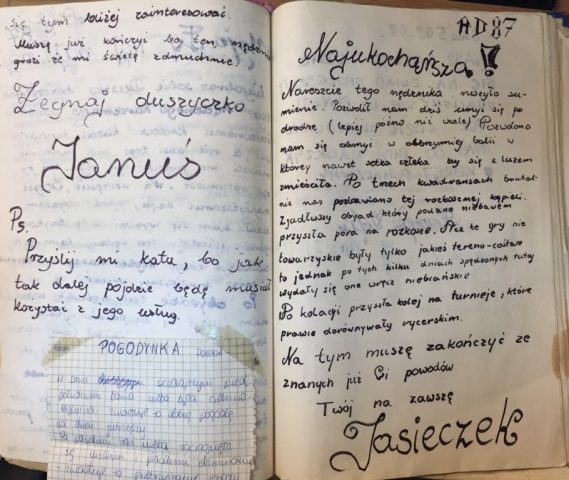 się tym bliżej zainteresować.
Muszę już kończyć bo ten nędznik
grozi że mi świecę zdmuchnie!
Żegnaj duszyczko
Januś
Ps.
Przyślij mi kata, bo jak
tak dalej pójdzie będę musiał
korzystać z jego usług.
POGODYNKA
W dniu wczorajszym przed
południem
AD 87
Najukochańsza!
Nareszcie tego nędznika ruszyło su-
mienie. Pozwolił nam dziś umyć się po
drodze (lepiej późno niż wcale) Pozwolono
nam się obmyć w olbrzymiej balii w
której nawet setka człeka by się z luzem
zmieściła. Po trzech kwadransach brutal-
nie nas pozbawiono tej rozkosznej kąpieli.
Zjadłwszy obyad który podano niebawem
przyszła pora na rozkosze. Ale te gry nie
towarzyskie były tylko jakieś tereno-coitowo
to jednak po tych kilku dniach spędzonych tutaj
wydały się one wręcz niebiańskie
Po kolacji przyszła kolej na turnieje, które
prawie dorównywały rycerskim.
Na tym muszę zakończyć ze
znanych już Ci powodów
Twój na zawszę
Jasieczek